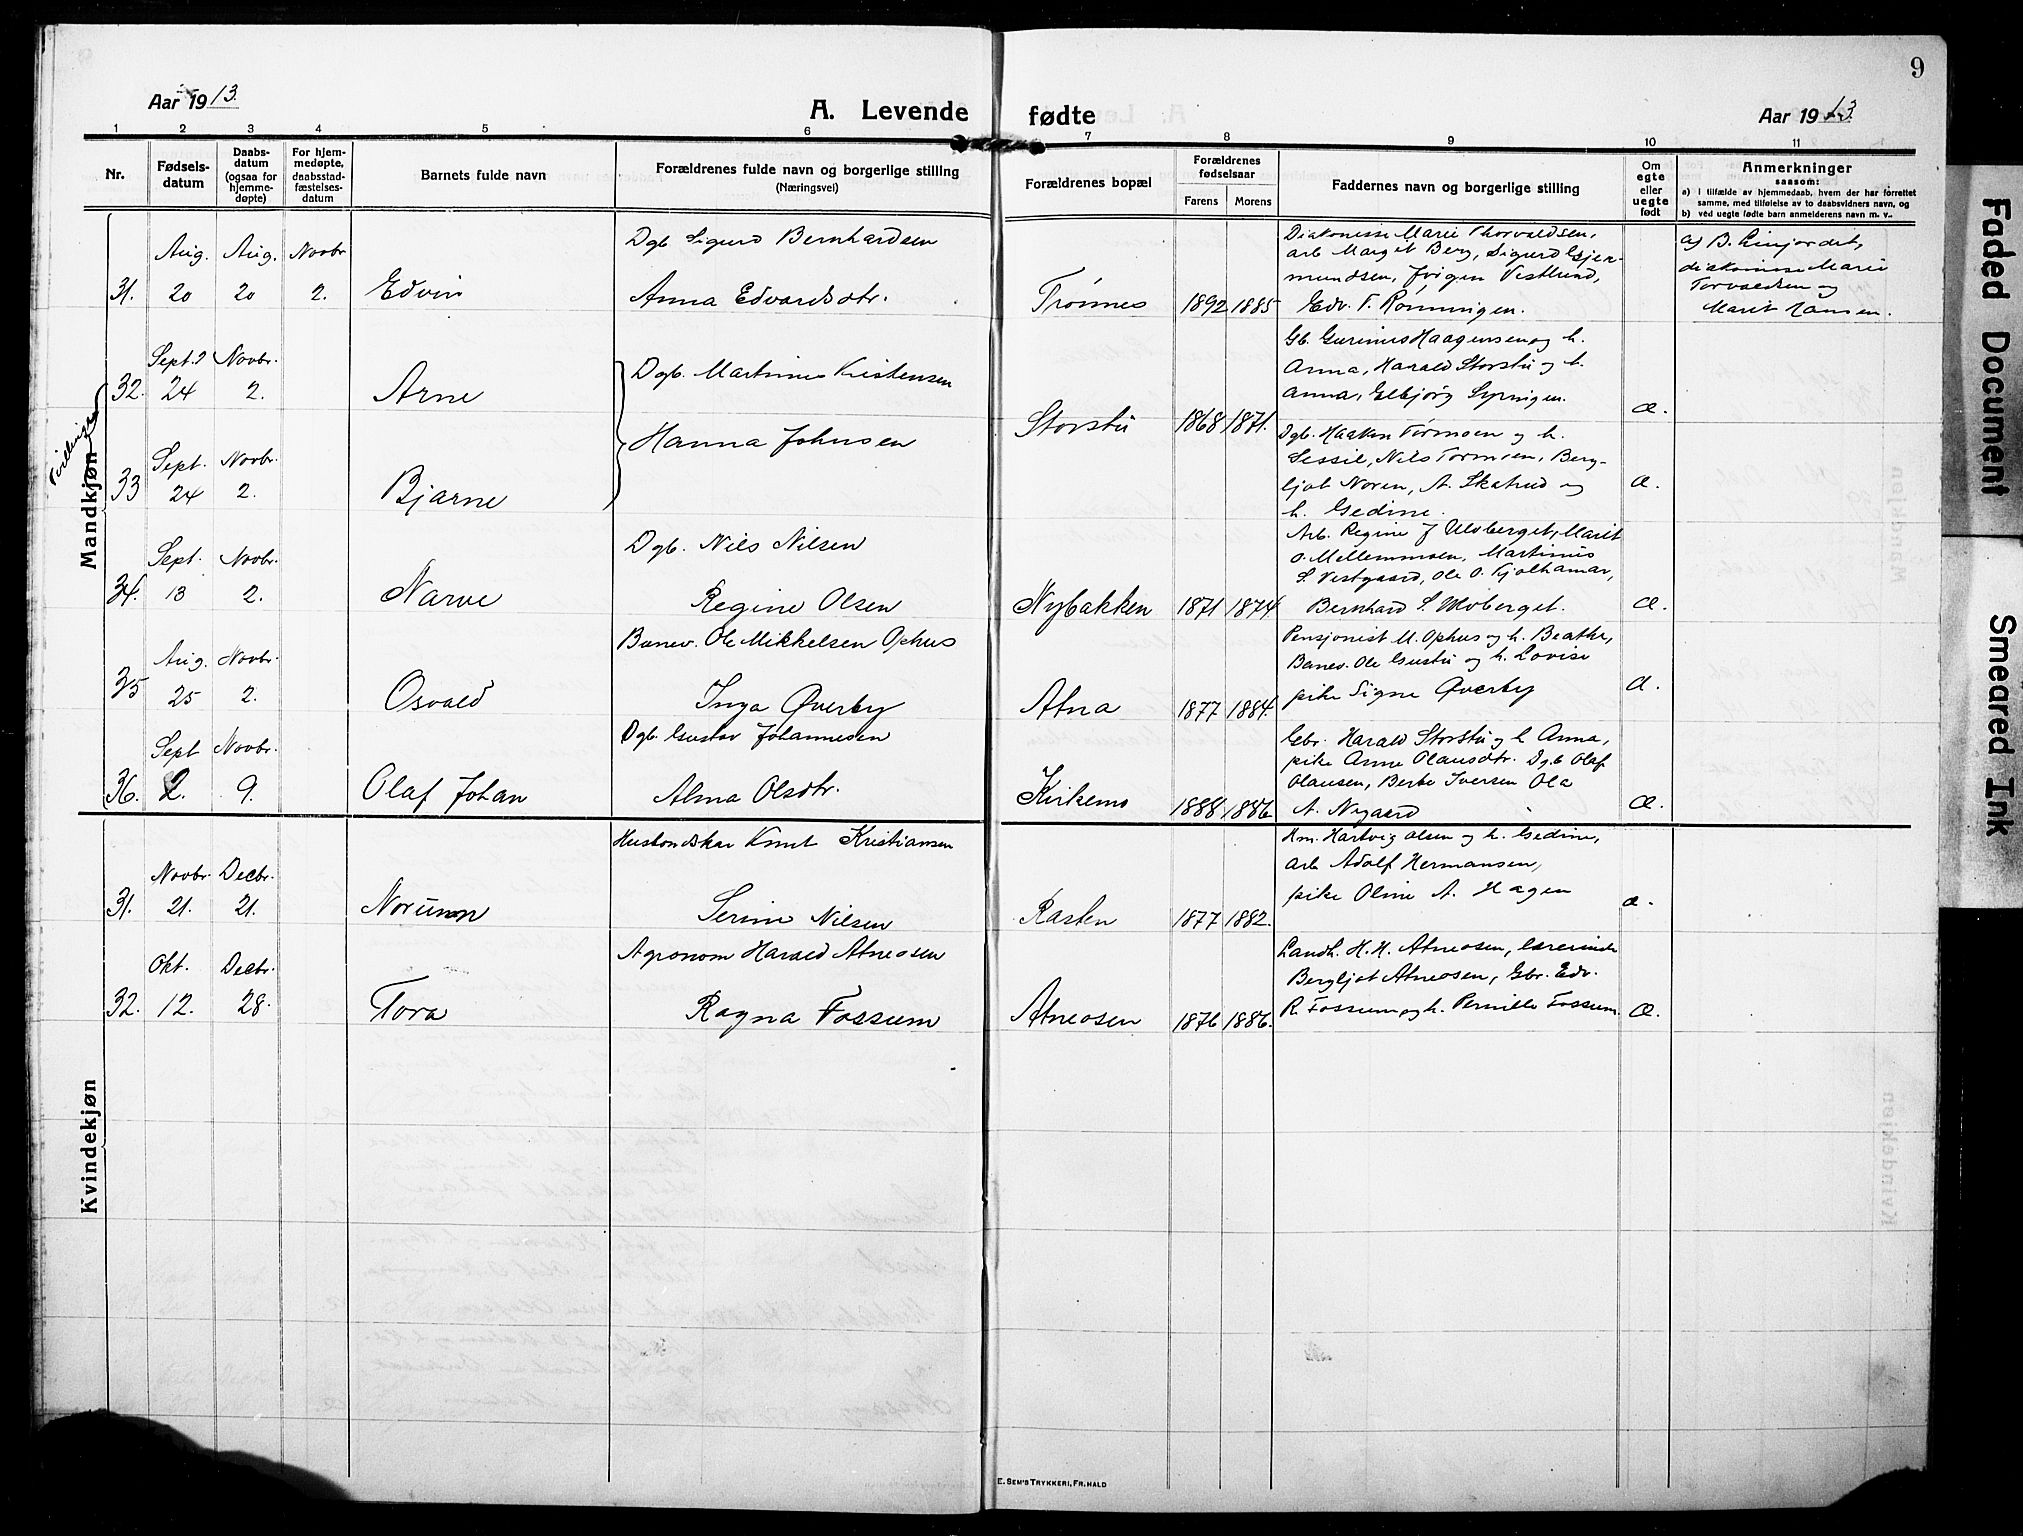 9
Aar 1913.
A. Levende fødte
Aar 1913.
1 2 3 4 5 6 7 8 9 10 11
Nr.
Fødsels-
datum
Daabs-
datum
(ogsaa for
hjemme-
døpte)
For hjem-
medøpte,
daabsstad-
fæstelses-
datum
Barnets fulde navn
Forældrenes fulde navn og borgerlige stilling
(Næringsvei)
Forældrenes bopæl
Forældrenes
fødselsaar
Farens
Morens
Faddernes navn og borgerlige stilling
Om
egte
eller
uegte
født
Anmerkninger
saasom:
a) i tilfælde av hjemmedaab, hvem der har forrettet
samme, med tilføielse av to daabsvidners navn, og
b) ved uegte fødte barn anmelderens navn m. v..
Mandkjøn
Tvillinger
31.
Aug. 20
Aug. 20
Novbr 2.
Edvin
Dgb Sigurd Bernhardsen
Anna Edvardsdtr.
Trønnes
1892 1885
Diakonesse Marie Thorvaldsen,
arb Margit Berg, Sigurd Gjer-
mundsen, Vestlund,
Edv. T. Rønningen.
a) B. Linjordet,
diakonisse Marie
Torvaldsen og
Marit Hansen.
32.
Sept. 24
Novbr. 2.
Arne
Dgb. Martinus Kristensen
Hanna Johnsen
Storstu
1868 1871.
Gb. Gurinius Haagensen og h.
Anna, Harald Storstu og h.
Anna, Gelbjørg
Æ.
33
Sept. 24
Novbr. 2.
Bjarne
Dgb. Haakon Tørmoen og h.
Sessil, Nils Tørmoen, Berg-
ljot Noren, A. Skatrud og
h. Gedine.
Æ.
34.
Sept. 13
Novbr. 2.
Narve
Dgb. Nils Nilsen
Regine Olsen
Nybakken
1871 1874.
Arb. Regine J Ulvberget, Marit
O. Mellemmoen, Martinus
S. Vestgaard, Ole O. Kjølhamar,
Bernhard S. Ulvberget.
Æ.
35
Aug. 25
Novbr. 2.
Osvald
Banev. Ole Mikkelsen Ophus
Inga Øverby
Atna
1877 1884.
Pensjonist M. Ophus og h. Beathe,
Banev. Ole Gustu og h. Lovise
pike Signe Øverby
Æ.
36.
Sept 2.
Novbr. 9.
Olaf Johan
Dgb. Gustav Johannesen
Alma Olsdtr.
Kirkemo
1888 1886.
Gbr. Harald Storstu og h Anna,
pike Anne Olausdtr. Dgb Olaf
Olausen, Berte Iversen Ola
A. Nygaard
Æ.
Kvindekjøn
31.
Novbr 21.
Decbr. 21.
Norunn
Husbondskar Knut Kristiansen
Serine Nilsen
Rasten
1877 1882.
Km. Hartvig Olsen og h. Gedine,
arb Adolf Hermansen,
pike Oline A. Hagen
Æ.
32.
Okt. 12.
Decbr. 28.
Tora
Agronom Harald Atneosen
Ragna Fossum
Atneosen
1876 1886.
Landh. H. H. Atneosen, lærerinde
Bergljot Atneosen, Gbr. Edv.
R. Fossum og h. Pernille Fossum
Æ.
E. SEM'S TRYKKERI, FR.HALD
Faded Document
Smeared Ink